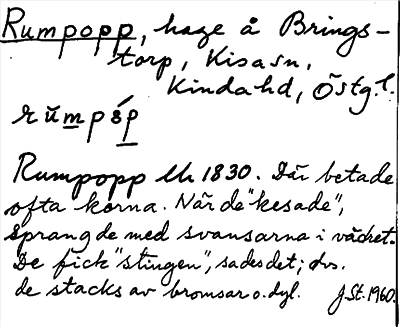 Rumpopp, hage å Brings-
torp, Kisa sn,
Kinda hd, Östg. l.
rŭmpóp
Rumpopp lh 1830. Där betade
ofta korna. När de "kesade",
sprang de med svansarna i vädret.
De fick "stingen", sades det; dvs.
de stacks av bromsar o. dyl. J. St. 1960.